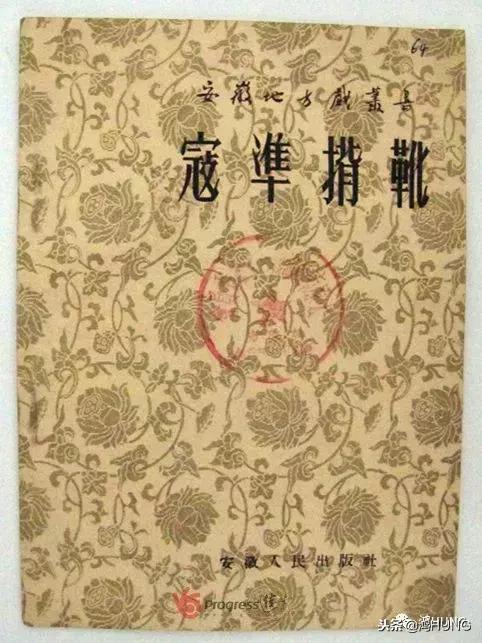 64
安徽地方戲叢書
寇準揹靴
安徽人民出版社
Progress
头条@鸿HUNG